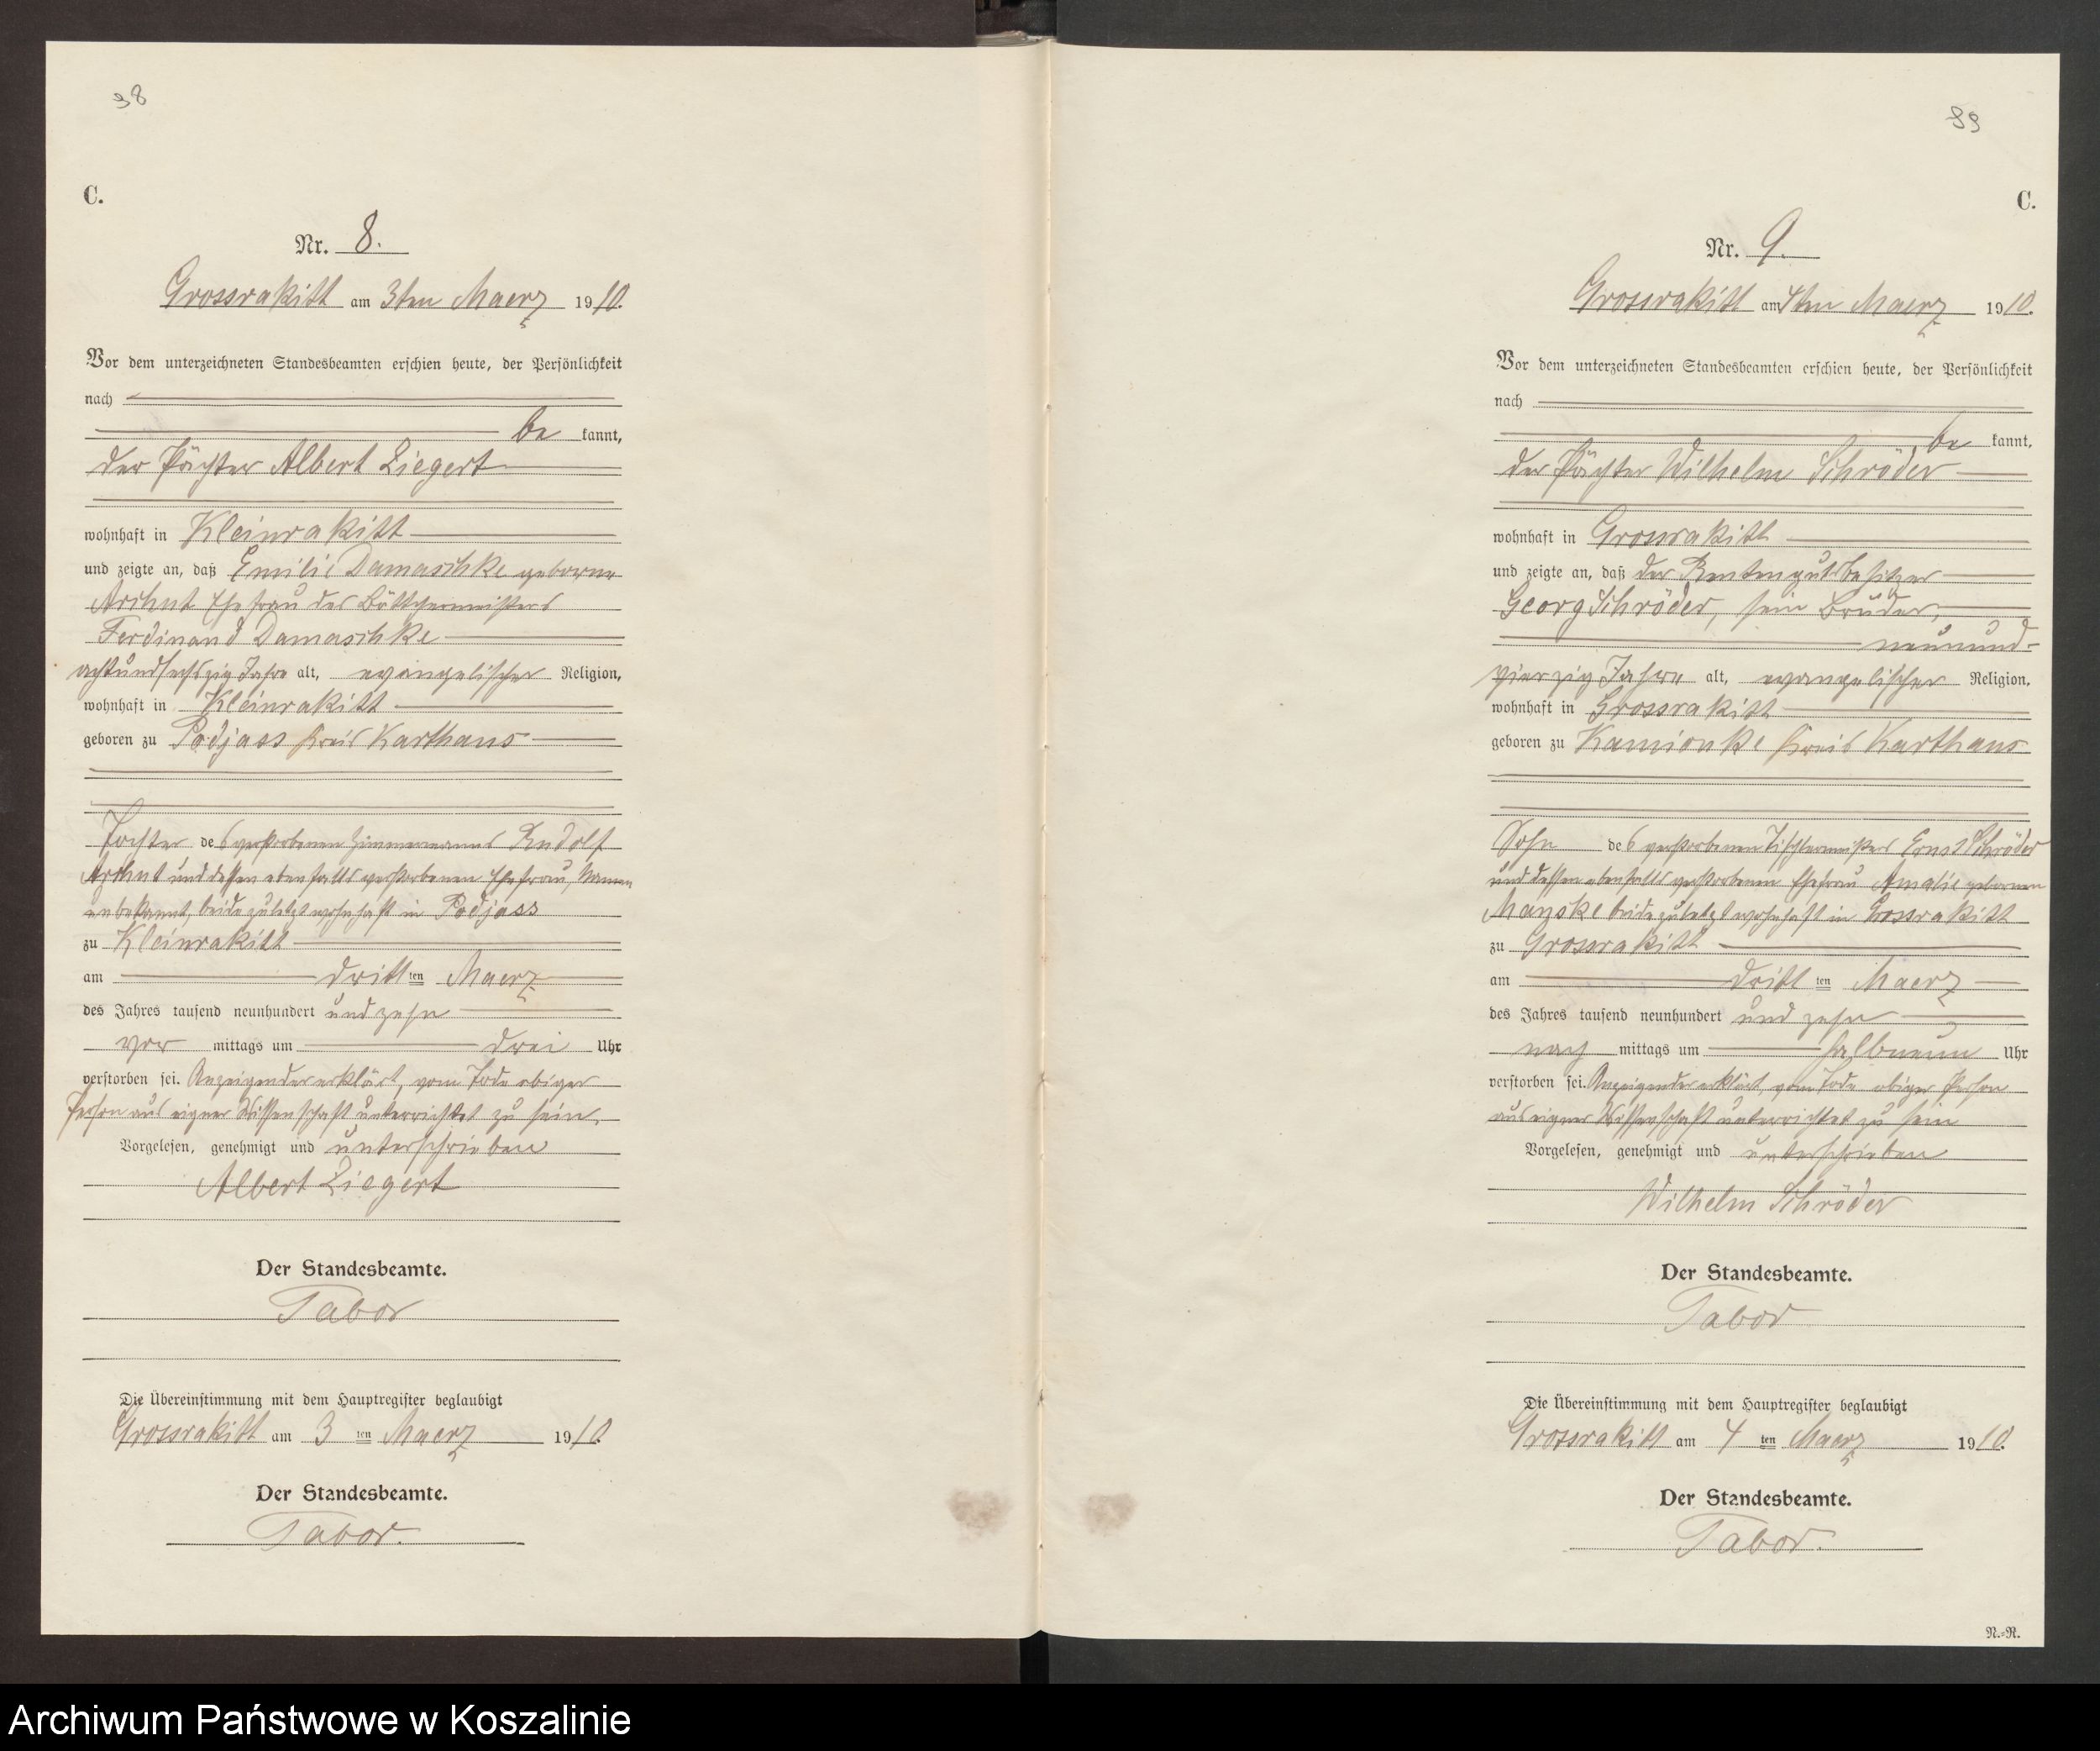 38
C.
Nr. 8.
Grossrakitt am 3ten Maerz 1910.
Vor dem unterzeichneten Standesbeamten erschien heute, der Persönlichkeit
nach
be kannt,
der Pächter Albert Liegert
wohnhaft in Kleinrakitt
und zeigte an, daß Emilie Damaschke geborene
Arthut Ehefrau des Böttchermeisters
Ferdinand Damaschke
achtundsechszig Jahre alt, evangelischer Religion,
wohnhaft in Kleinrakitt
geboren zu Podjass Kreis Karthaus
Tochter des verstorbenen Zimmermanns Rudolf
und dessen ebenfalls verstorbenen Ehefrau, Namen
unbekannt, beide zuletzt wohnhaft in Podjass
zu Kleinrakitt
am dritt ten Maerz
des Jahres tausend neunhundert und zehn
vor mittags um drei Uhr
verstorben sei. Anzeigender erklärt, vom Tode obiger
Person aus eigner Wissenschaft unterrichtet zu sein.
Vorgelesen, genehmigt und unterschrieben
Albert Liegert
Der Standesbeamte.
Tabor
Die Übereinstimmung mit dem Hauptregister beglaubigt
Grossrakitt am 3 ten Maerz 1910.
Der Standesbeamte.
Tabor.
39
C.
Nr. 9.
Grossrakitt am 4ten Maerz 1910.
Vor dem unterzeichneten Standesbeamten erschien heute, der Persönlichkeit
nach
be kannt,
der Pächter Wilhelm Schröder
wohnhaft in Grossrakitt
und zeigte an, daß der Rentengutsbesitzer
Georg Schröder, sein Bruder,
neunund-
vierzig Jahre alt, evangelischer Religion,
wohnhaft in Grossrakitt
geboren zu Kamionke Kreis Karthaus
Sohn des verstorbenen Tischlermeisters Ernst Schröder
und dessen ebenfalls verstorbenen Ehefrau Amalie geborenen
Manske beide zuletzt wohnhaft in Grossrakitt
zu Grossrakitt
am dritt ten Maerz
des Jahres tausend neunhundert und zehn
nach mittags um halbneun Uhr
verstorben sei. Anzeigender erklärt, vom Tode obiger Person
aus eigner Wissenschaft unterrichtet zu sein
Vorgelesen, genehmigt und unterschrieben
Wilhelm Schröder
Der Standesbeamte.
Tabor
Die Übereinstimmung mit dem Hauptregister beglaubigt
Grossrakitt am 4 ten Maerz 1910.
Der Standesbeamte.
Tabor.
N.=R.
Archiwum Państwowe w Koszalinie